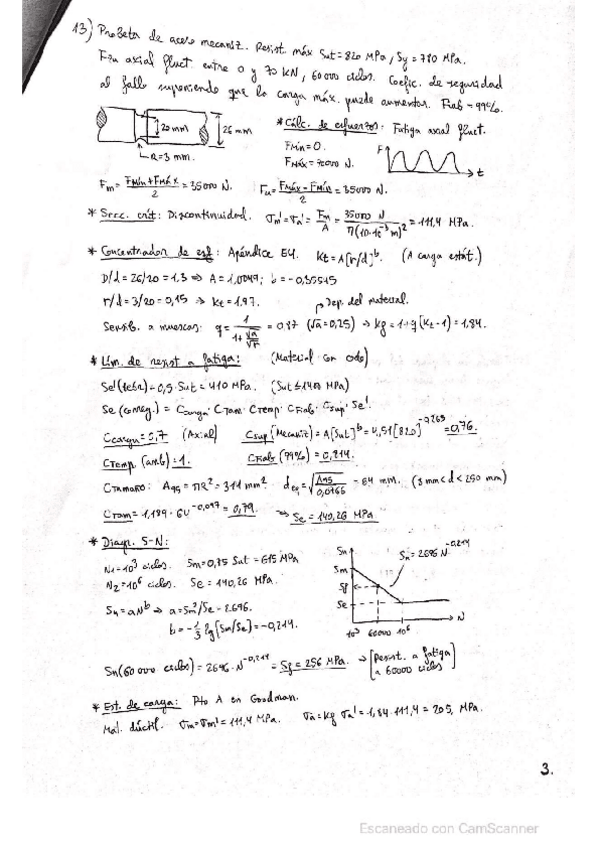 13) Probeta de acero mecaniz. Resist. máx Sut=820 MPa, Sy=710 MPa.
Fza axial fluct. entre 0 y 70 kN, 60000 ciclos. Coefic. de seguridad
al fallo suponiendo que la carga máx. puede aumentar. Fiab=99%.
20 mm
26 mm
R=3 mm.
* Cálc. de esfuerzos: Fatiga axial fluct.
Fmín=0.
Fmáx=70000 N.
F
t
Fm= Fmín+Fmáx / 2 = 35000 N.
Fa= Fmáx-Fmín / 2 = 35000 N.
* Secc. crít: Discontinuidad. σm'=σa'= Fm / A = 35000 N / π(10·10⁻³m)² = 111,4 MPa.
* Concentrador de esf: Apéndice E4. Kt=A[r/d]^b. (A carga estát.)
D/d=26/20=1,3 ⇒ A=1,0049; b=-0,35515
r/d=3/20=0,15 ⇒ Kt=1,97.
Dep. del material.
Sensib. a muescas: q= 1 / 1+ √a/√r = 0,87 (√a=0,25) ⇒ Kf=1+q(Kt-1)=1,84.
* Lím. de resist a fatiga: (Material con codo)
Se'(teór)=0,5·Sut=410 MPa. (Sut≤1400 MPa)
Se(correg.)=Ccarga·Ctam·Ctemp·Cfiab·Csup·Se'.
Ccarga=0,7 (Axial) Csup(Mecaniz)=A[Sut]^b=4,51[820]^-0,265=0,76.
Ctemp(amb)=1. Cfiab(99%)=0,814.
Ctamaño: A95=πR²=314 mm² deq=√(A95/0,0766)=64 mm. (8mm<d<250 mm)
Ctam=1,189·64^-0,097=0,79. ⇒ Se=140,26 MPa
* Diagr. S-N:
N1=10³ ciclos. Sm=0,75 Sut=615 MPa
N2=10⁶ ciclos. Se=140,26 MPa.
Sn=aN^b ⇒ a=Sm²/Se=2696.
b=-1/3 lg(Sm/Se)=-0,214.
Sn
Sm
Sf
Se
Sn=2696 N^-0,214
10³ 60000 10⁶
N
Sn(60000 ciclos)=2696·N^-0,214=Sf=256 MPa. ⇒ [Resist. a fatiga
a 60000 ciclos]
* Est. de carga: Pto A en Goodman.
Mat. dúctil. σm=σm'=111,4 MPa. σa=Kf σa'=1,84·111,4=205, MPa.
3.
Escaneado con CamScanner